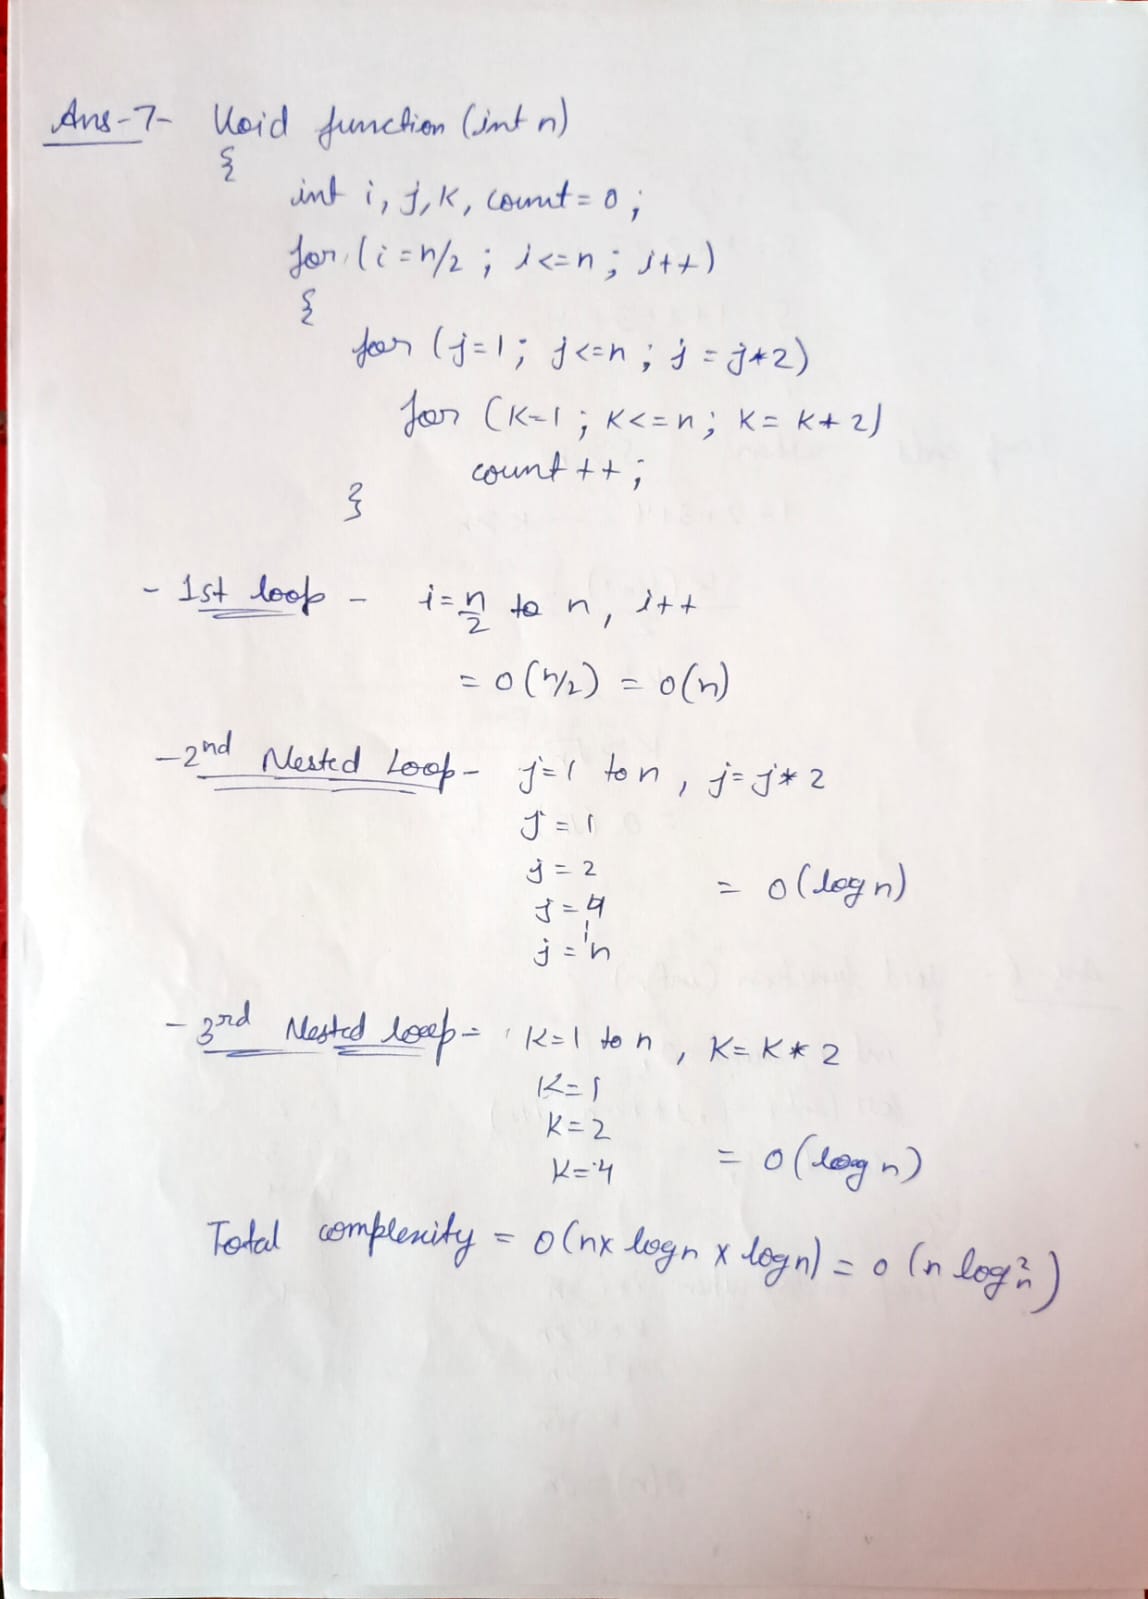 Ans-7- Void function (int n)
{
int i, j, k, count = 0 ;
for (i = n/2 ; i <= n ; i++)
{
for (j=1 ; j<=n ; j = j*2)
for (K=1 ; K<=n ; K = K*2)
count ++ ;
}
- 1st loop - i = n/2 to n, i++
= O(n/2) = O(n)
- 2nd Nested Loop - j=1 to n , j=j*2
j = 1
j = 2
= O(log n)
j = 4
j = n
- 3rd Nested loop = K=1 to n , K= K * 2
K=1
K=2
K=4 = O(log n)
Total complexity = O(n x logn x logn) = O (n log²n)